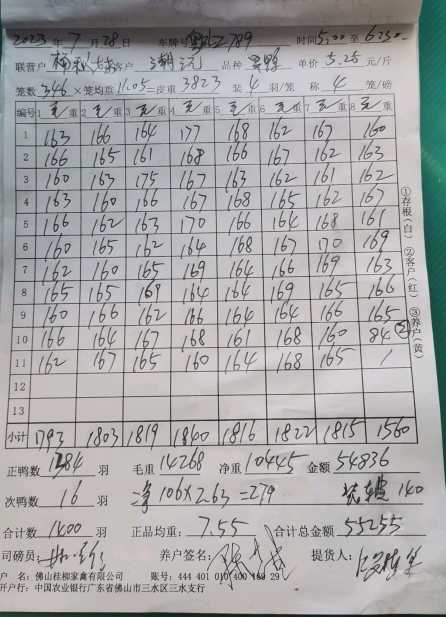 2023年 7月28日 车牌号 2789 时间5:00 至 6:30
联营户 客户 品种 单价 5.25 元/斤
笼数 346 ×笼均重 11.05=皮重 3823 装 4 羽/笼 称 4 笼/磅
编号 1 毛/重 2 毛/重 3 毛/重 4 毛/重 5 毛/重 6 毛/重 7 毛/重 8 毛/重
1 163 166 164 177 168 162 167 160
2 166 165 161 168 166 167 162 163
3 160 163 175 167 163 162 161 162
4 163 160 166 167 168 165 162 167
5 166 162 163 170 166 164 168 161
6 160 165 162 164 168 167 170 169
7 162 160 165 169 164 166 169 163
8 165 165 169 164 164 169 165 166
9 160 166 162 166 164 164 166 165
10 166 164 167 168 161 168 160 84 ②
11 162 167 165 160 164 168 165 /
12
13
小计 1793 1803 1819 1840 1816 1822 1815 1560
正鸭数 1384 羽 毛重 14268 净重 10445 金额 54836
次鸭数 16 羽 净 106×2.63=279 装车费 140
合计数 1400 羽 正品均重: 7.55 合计总金额 55255
司磅员: 养户签名: 提货人:
户 名: 佛山桂柳家禽有限公司 账号: 444 401 010 400 169 29
开户行: 中国农业银行广东省佛山市三水区三水支行
①存根(白) ②客户(红) ③养户(黄)